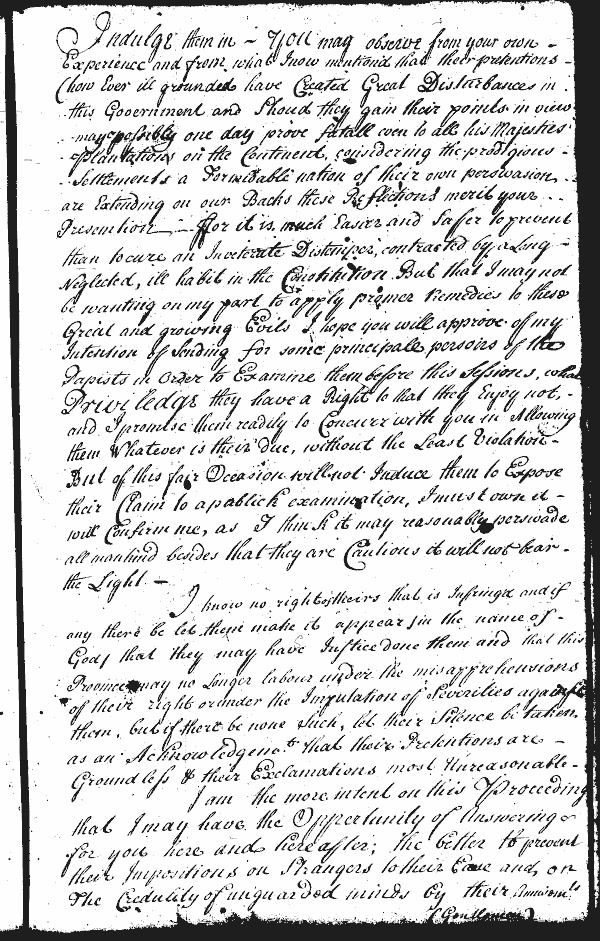 Indulge them in – You may observe from your own –
Experience and from what I now mentiond that their pretentions –
(how Ever ill grounded) have Created Great Disturbances in
this Government and Shoud they gain their points in view
may possibly one day prove fatall even to all his Majesties
Plantations on the Continent, considering the prodigious –
Settlements a Formidable nation of their own perswasion
are Extending on our Backs these Reflections merit your
Presention – For it is much Easier and Safer to prevent
than to cure an Inveterate Distemper, contracted by a Long –
Neglected, ill habit in the Constitution. But that I may not
be wanting on my part to apply proper Remedies to these
Great and growing Evils I hope you will approve of my
Intention of Sending for some principale persons of the
Papists in order to Examine them before this Sessions, what
Priviledge they have a Right to that they Enjoy not,
and I promise them readily to Concurr with you in Allowing
them Whatever is their due, without the Least Violation –
But if this fair Occasion will not Induce them to Expose
their Claim to a publick examination, I must own it –
will Confirm me, as I think it may reasonably perswade
all mankind besides that they are Cautious it will not bear –
the Light –
I know no right of theirs that is Infringd and if
any there be let them make it appear in the name of –
God, that they may have Justice done them and that this
Province may no Longer labour under the misapprehensions
of their right or under the Imputation of Severities against
them, but if there be none Such, let their Silence be taken
as an Acknowledgem.t that their Pretentions are –
Groundless & their Exclamations most Unreasonable –
I am the more intent on this Proceeding
that I may have the Opportunity of Answering
for you here and hereafter; the better to prevent
their Impositions on Strangers to their Case and, on
The Credulity of unguarded minds by their
Gentlemen